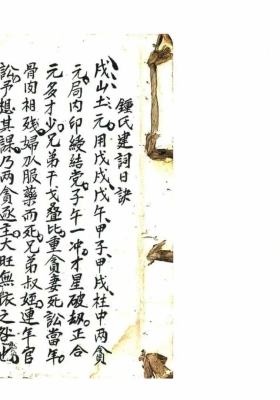 鍾氏建詞日訣
戌山土元用戊戌戊午甲子甲戌柱中两貪
元局内印綬結党子午一冲才星破刼正合
元多才少兄弟干戈叠比重貪妻死訟當年
骨肉相残婦从服藥而死兄弟叔姪連年官
訟予想其謀乃两貪逐主大旺無依之咎也